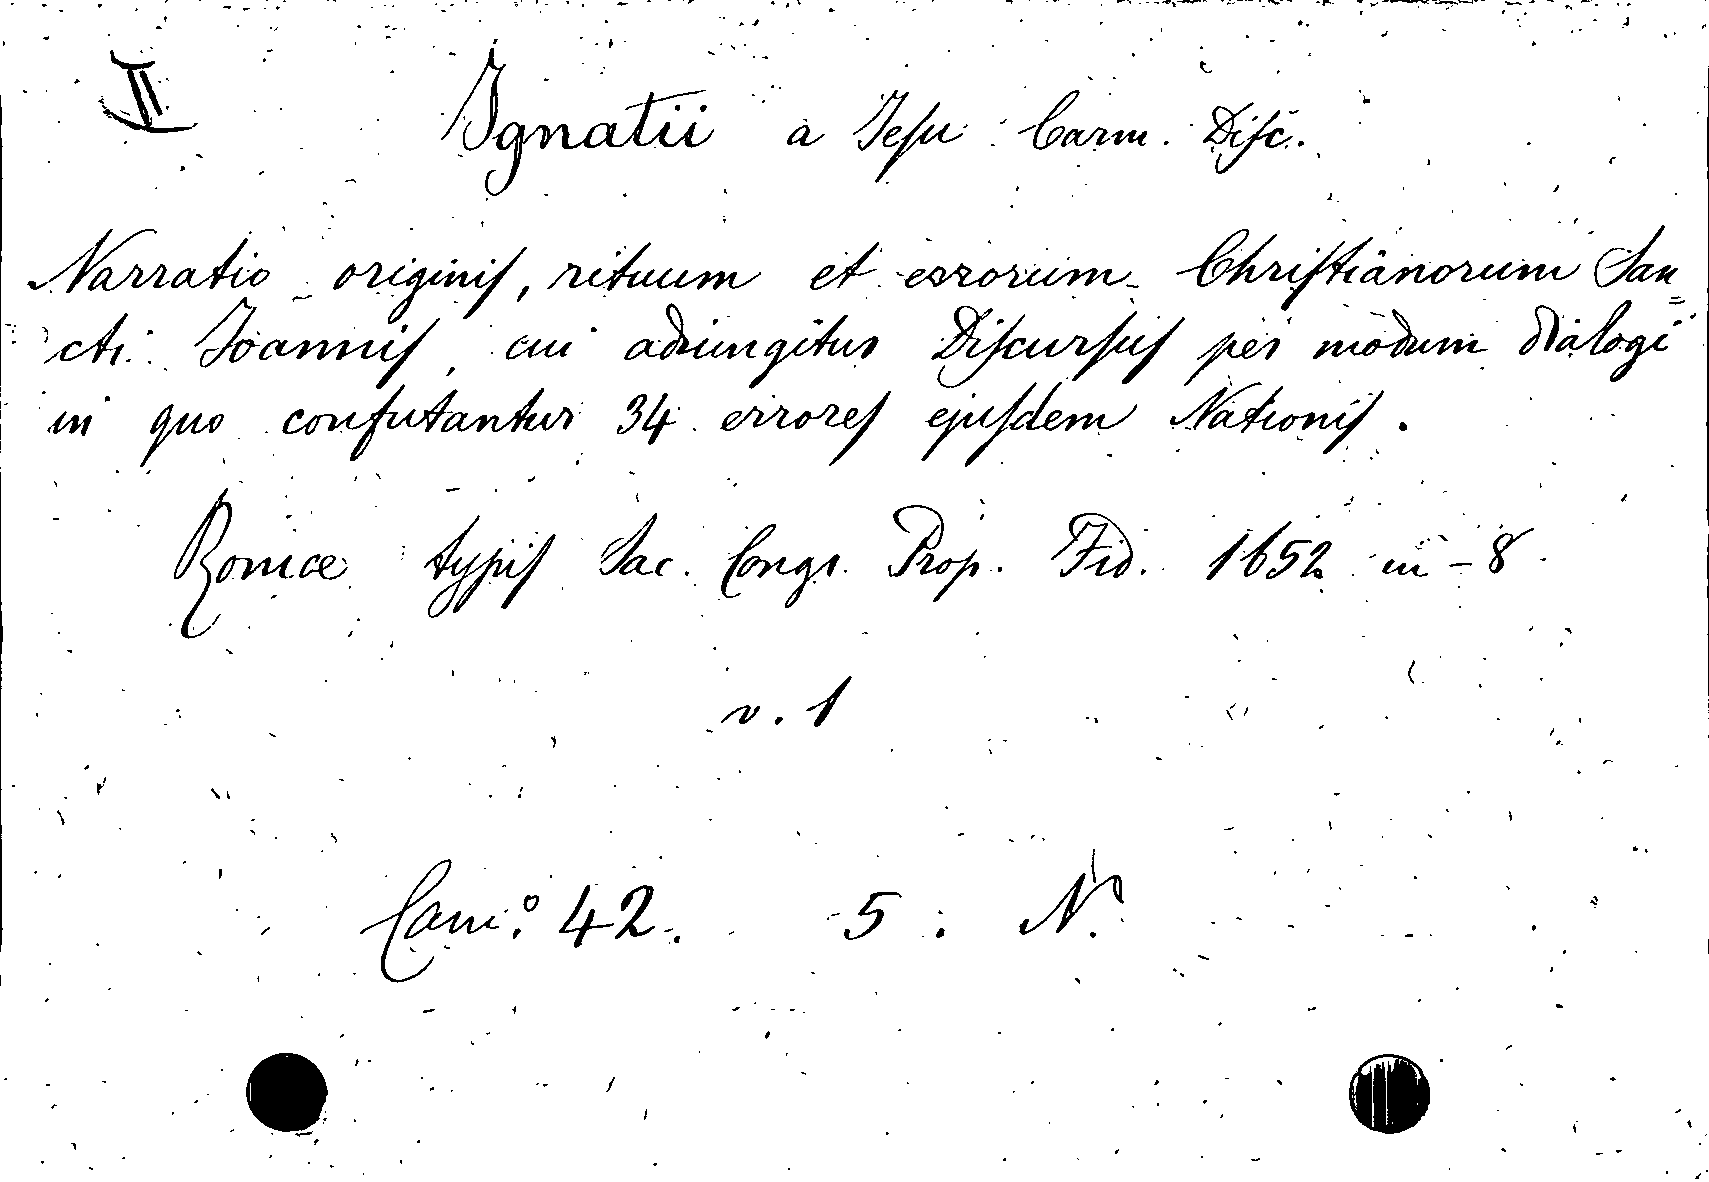 II
Ignatii a Jesu Carm. Disc.
Narratio originis, rituum et errorum Christianorum San=
cti Joannis, cui adiungitur Discursus per modum dialogi
in quo confutantur 34 errores ejusdem Nationis.
Romae typis Sac. Congr. Prop. Fid. 1652 in-8
v. 1
Cam.º 42. 5. N.